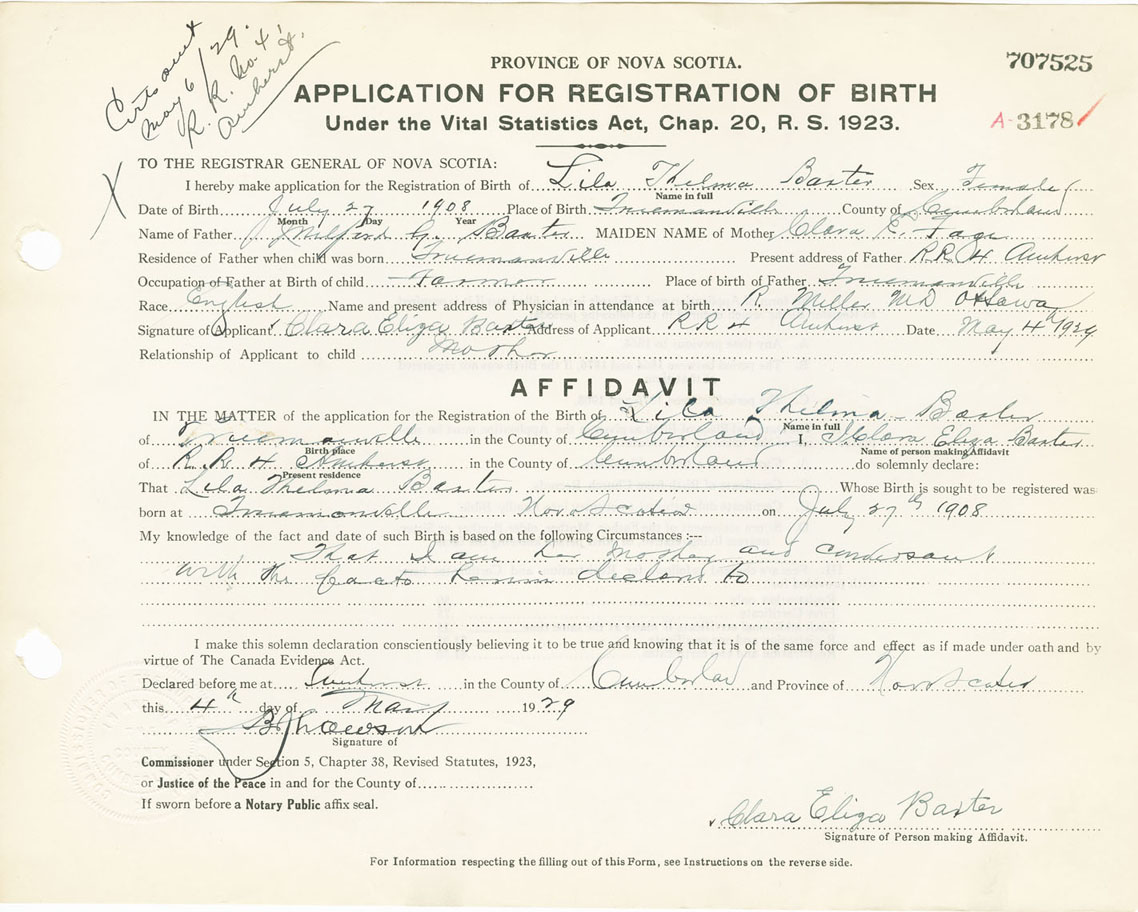 Certs out
May 6/29.
R. R. No. 4
Amherst.
707525
PROVINCE OF NOVA SCOTIA.
APPLICATION FOR REGISTRATION OF BIRTH
A-3178
Under the Vital Statistics Act, Chap. 20, R. S. 1923.
X
TO THE REGISTRAR GENERAL OF NOVA SCOTIA:
I hereby make application for the Registration of Birth of Lila Thelma Baxter Sex Female
Name in full
Date of Birth July 27 1908 Place of Birth Truemanville County of Cumberland
Month Day Year
Name of Father Milford G. Baxter MAIDEN NAME of Mother Clara E. Page
Residence of Father when child was born Truemanville Present address of Father RR 4 Amherst
Occupation of Father at Birth of child Farmer Place of birth of Father Truemanville
Race English Name and present address of Physician in attendance at birth R. Miller MD Ottawa
Signature of Applicant Clara Eliza Baxter Address of Applicant RR 4 Amherst Date May 4th 1929
Relationship of Applicant to child Mother
AFFIDAVIT
IN THE MATTER of the application for the Registration of the Birth of Lila Thelma Baxter
Name in full
of Truemanville in the County of Cumberland I, Clara Eliza Baxter
Birth place Name of person making Affidavit
of R.R 4 Amherst in the County of Cumberland do solemnly declare:
Present residence
That Lila Thelma Baxter Whose Birth is sought to be registered was
born at Truemanville Nova Scotia on July 27th 1908
My knowledge of the fact and date of such Birth is based on the following Circumstances :---
That I am her Mother and conversant
with the facts herein declared to
I make this solemn declaration conscientiously believing it to be true and knowing that it is of the same force and effect as if made under oath and by
virtue of The Canada Evidence Act.
Declared before me at Amherst in the County of Cumberland and Province of Nova Scotia
this 4th day of May 1929
Signature of
Commissioner under Section 5, Chapter 38, Revised Statutes, 1923,
or Justice of the Peace in and for the County of
If sworn before a Notary Public affix seal.
Clara Eliza Baxter
Signature of Person making Affidavit.
For Information respecting the filling out of this Form, see Instructions on the reverse side.